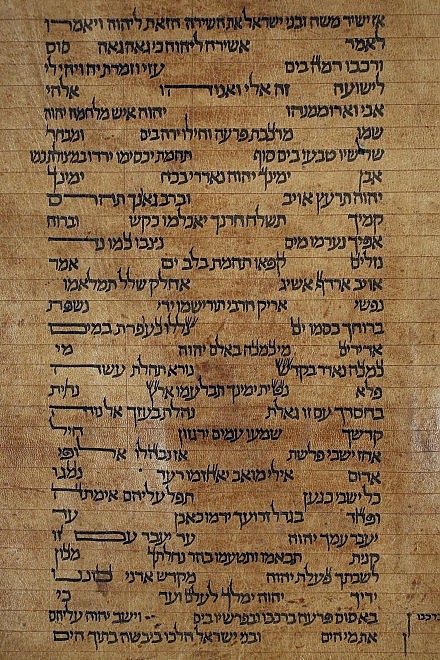 אז ישיר משה ובני ישראל את השירה הזאת ליהוה ויאמרו
לאמר אשירה ליהוה כי גאה גאה סוס
ורכבו רמה בים עזי וזמרת יה ויהי לי
לישועה זה אלי ואנוהו אלהי
אבי וארממנהו יהוה איש מלחמה יהוה
שמו מרכבת פרעה וחילו ירה בים ומבחר
שלשיו טבעו בים סוף תהמת יכסימו ירדו במצולת כמו
אבן ימינך יהוה נאדרי בכח ימינך
יהוה תרעץ אויב וברב גאנך תהרס
קמיך תשלח חרנך יאכלמו כקש וברוח
אפיך נערמו מים נצבו כמו נד
נזלים קפאו תהמת בלב ים אמר
אויב ארדף אשיג אחלק שלל תמלאמו
נפשי אריק חרבי תורישמו ידי נשפת
ברוחך כסמו ים צללו כעפרת במים
אדירים מי כמכה באלם יהוה מי
כמכה נאדר בקדש נורא תהלת עשה
פלא נטית ימינך תבלעמו ארץ נחית
בחסדך עם זו גאלת נהלת בעזך אל נוה
קדשך שמעו עמים ירגזון חיל
אחז ישבי פלשת אז נבהלו אלופי
אדום אילי מואב יאחזמו רעד נמגו
כל ישבי כנען תפל עליהם אימתה
ופחד בגדל זרועך ידמו כאבן עד
יעבר עמך יהוה עד יעבר עם זו
קנית תבאמו ותטעמו בהר נחלתך מכון
לשבתך פעלת יהוה מקדש אדני כוננו
ידיך יהוה ימלך לעלם ועד כי
בא סוס פרעה ברכבו ובפרשיו בים וישב יהוה עליהם
את מי הים ובני ישראל הלכו ביבשה בתוך הים